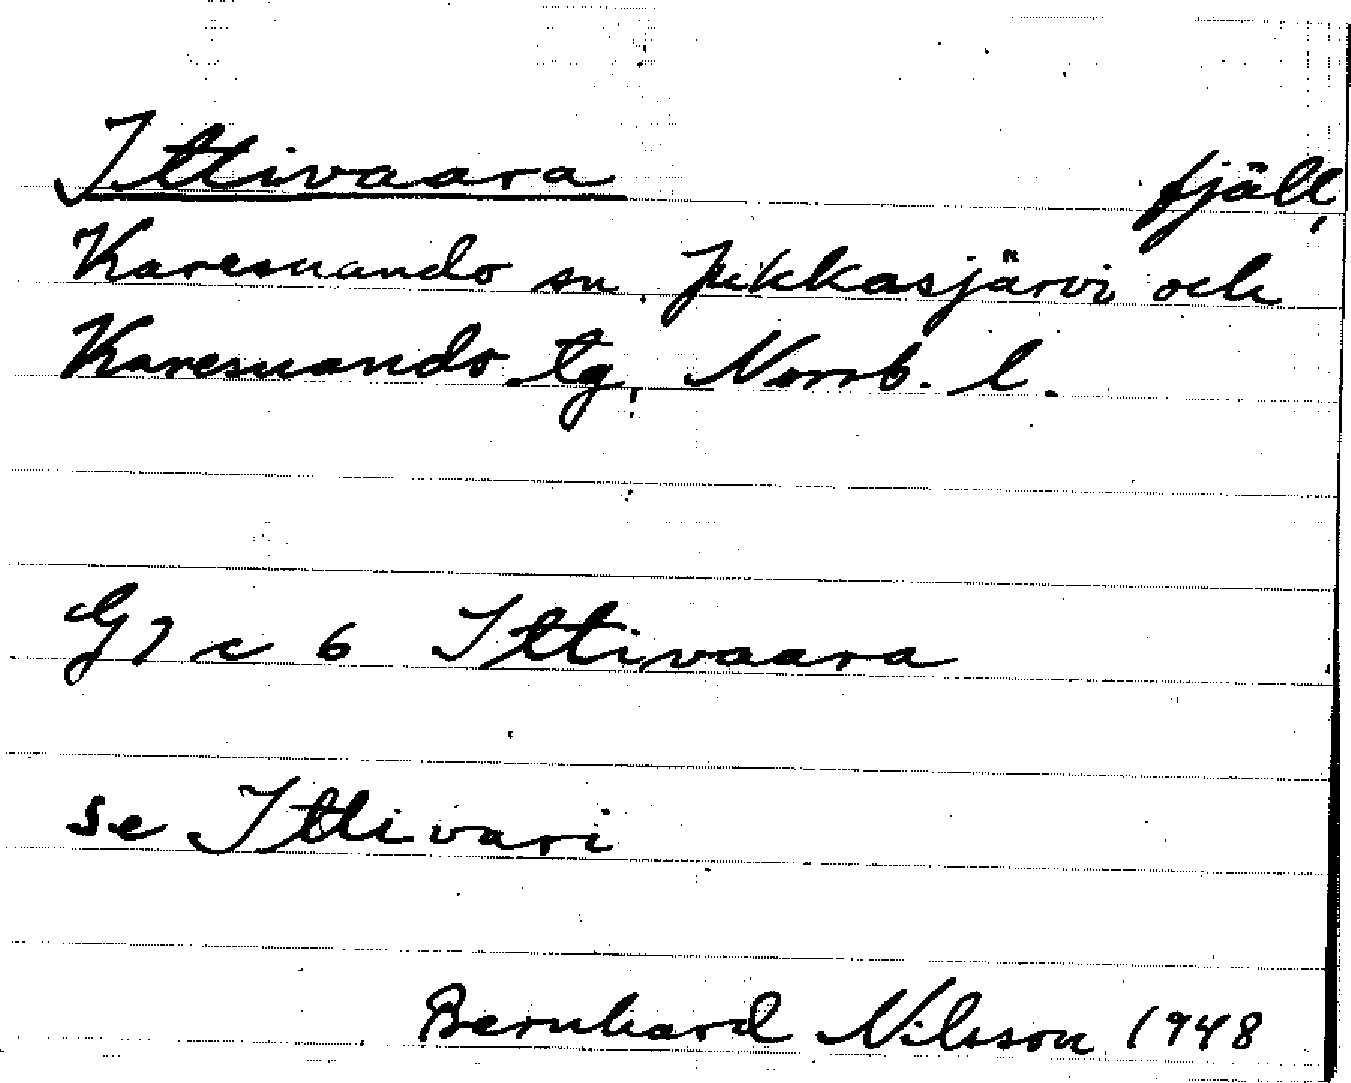 Ittivaara fjäll,
Karesuando sn, Jukkasjärvi och
Karesuando tg, Norrb. l.
G7 c 6 Ittivaara
se Ittivari
Bernhard Nilsson 1948